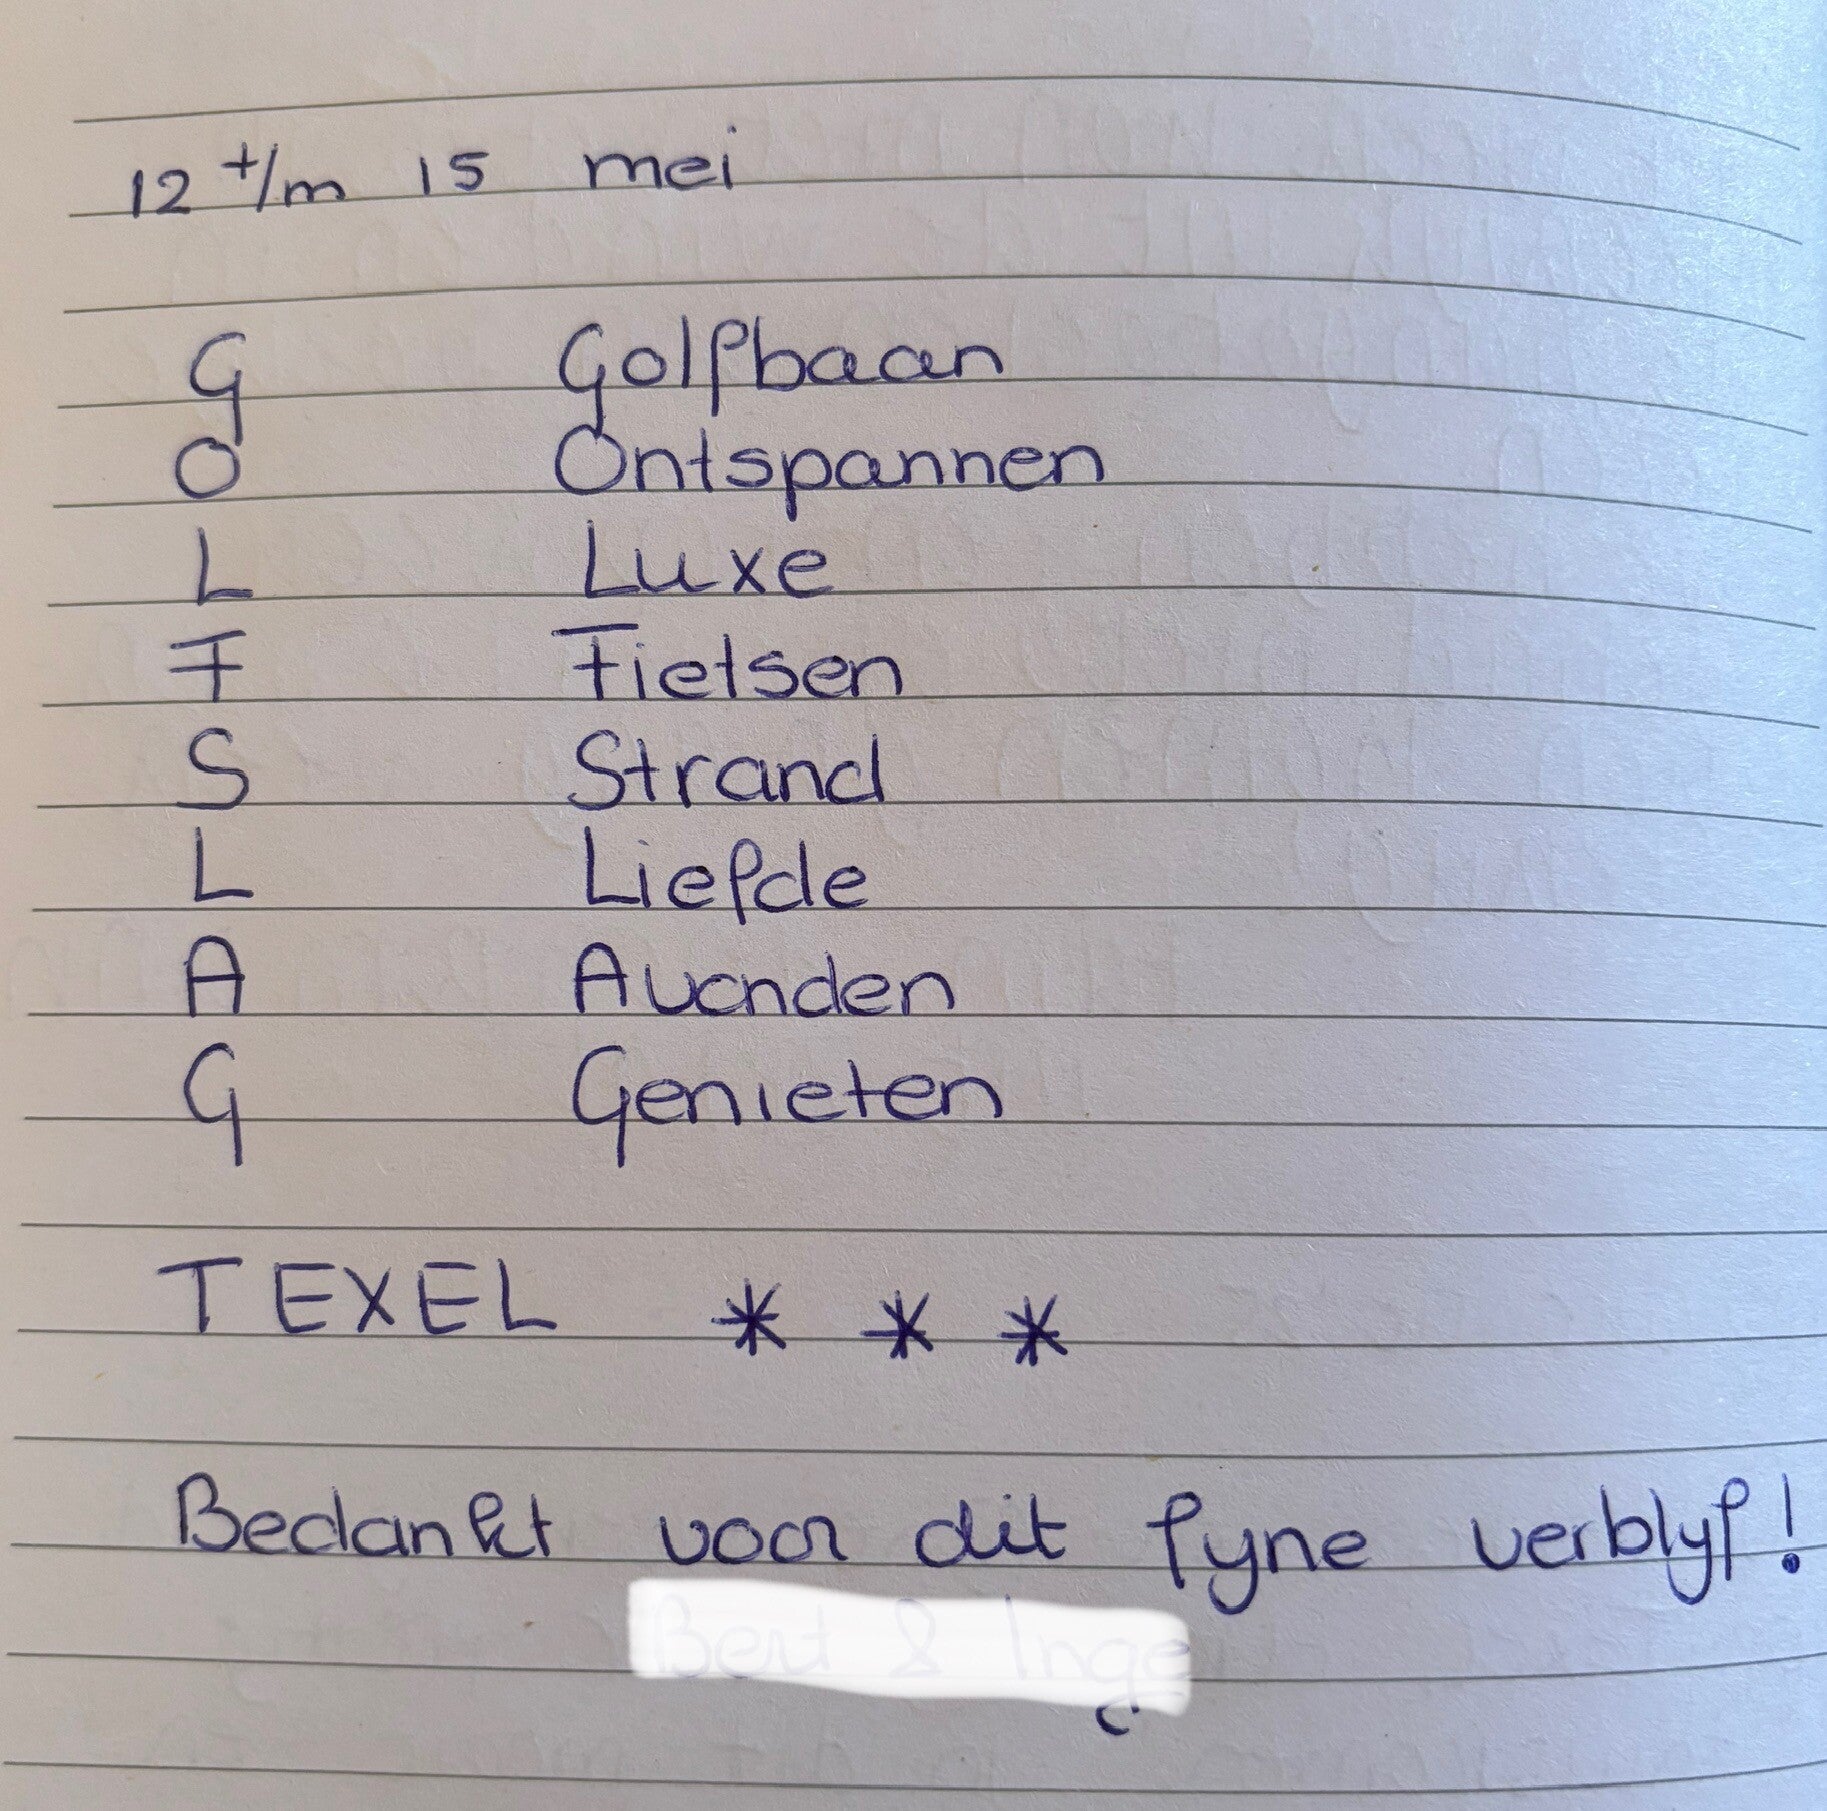 12 t/m 15 mei
G Golfbaan
O Ontspannen
L Luxe
F Fietsen
S Strand
L Liefde
A Avonden
G Genieten
TEXEL * * *
Bedankt voor dit fyne verblyf!